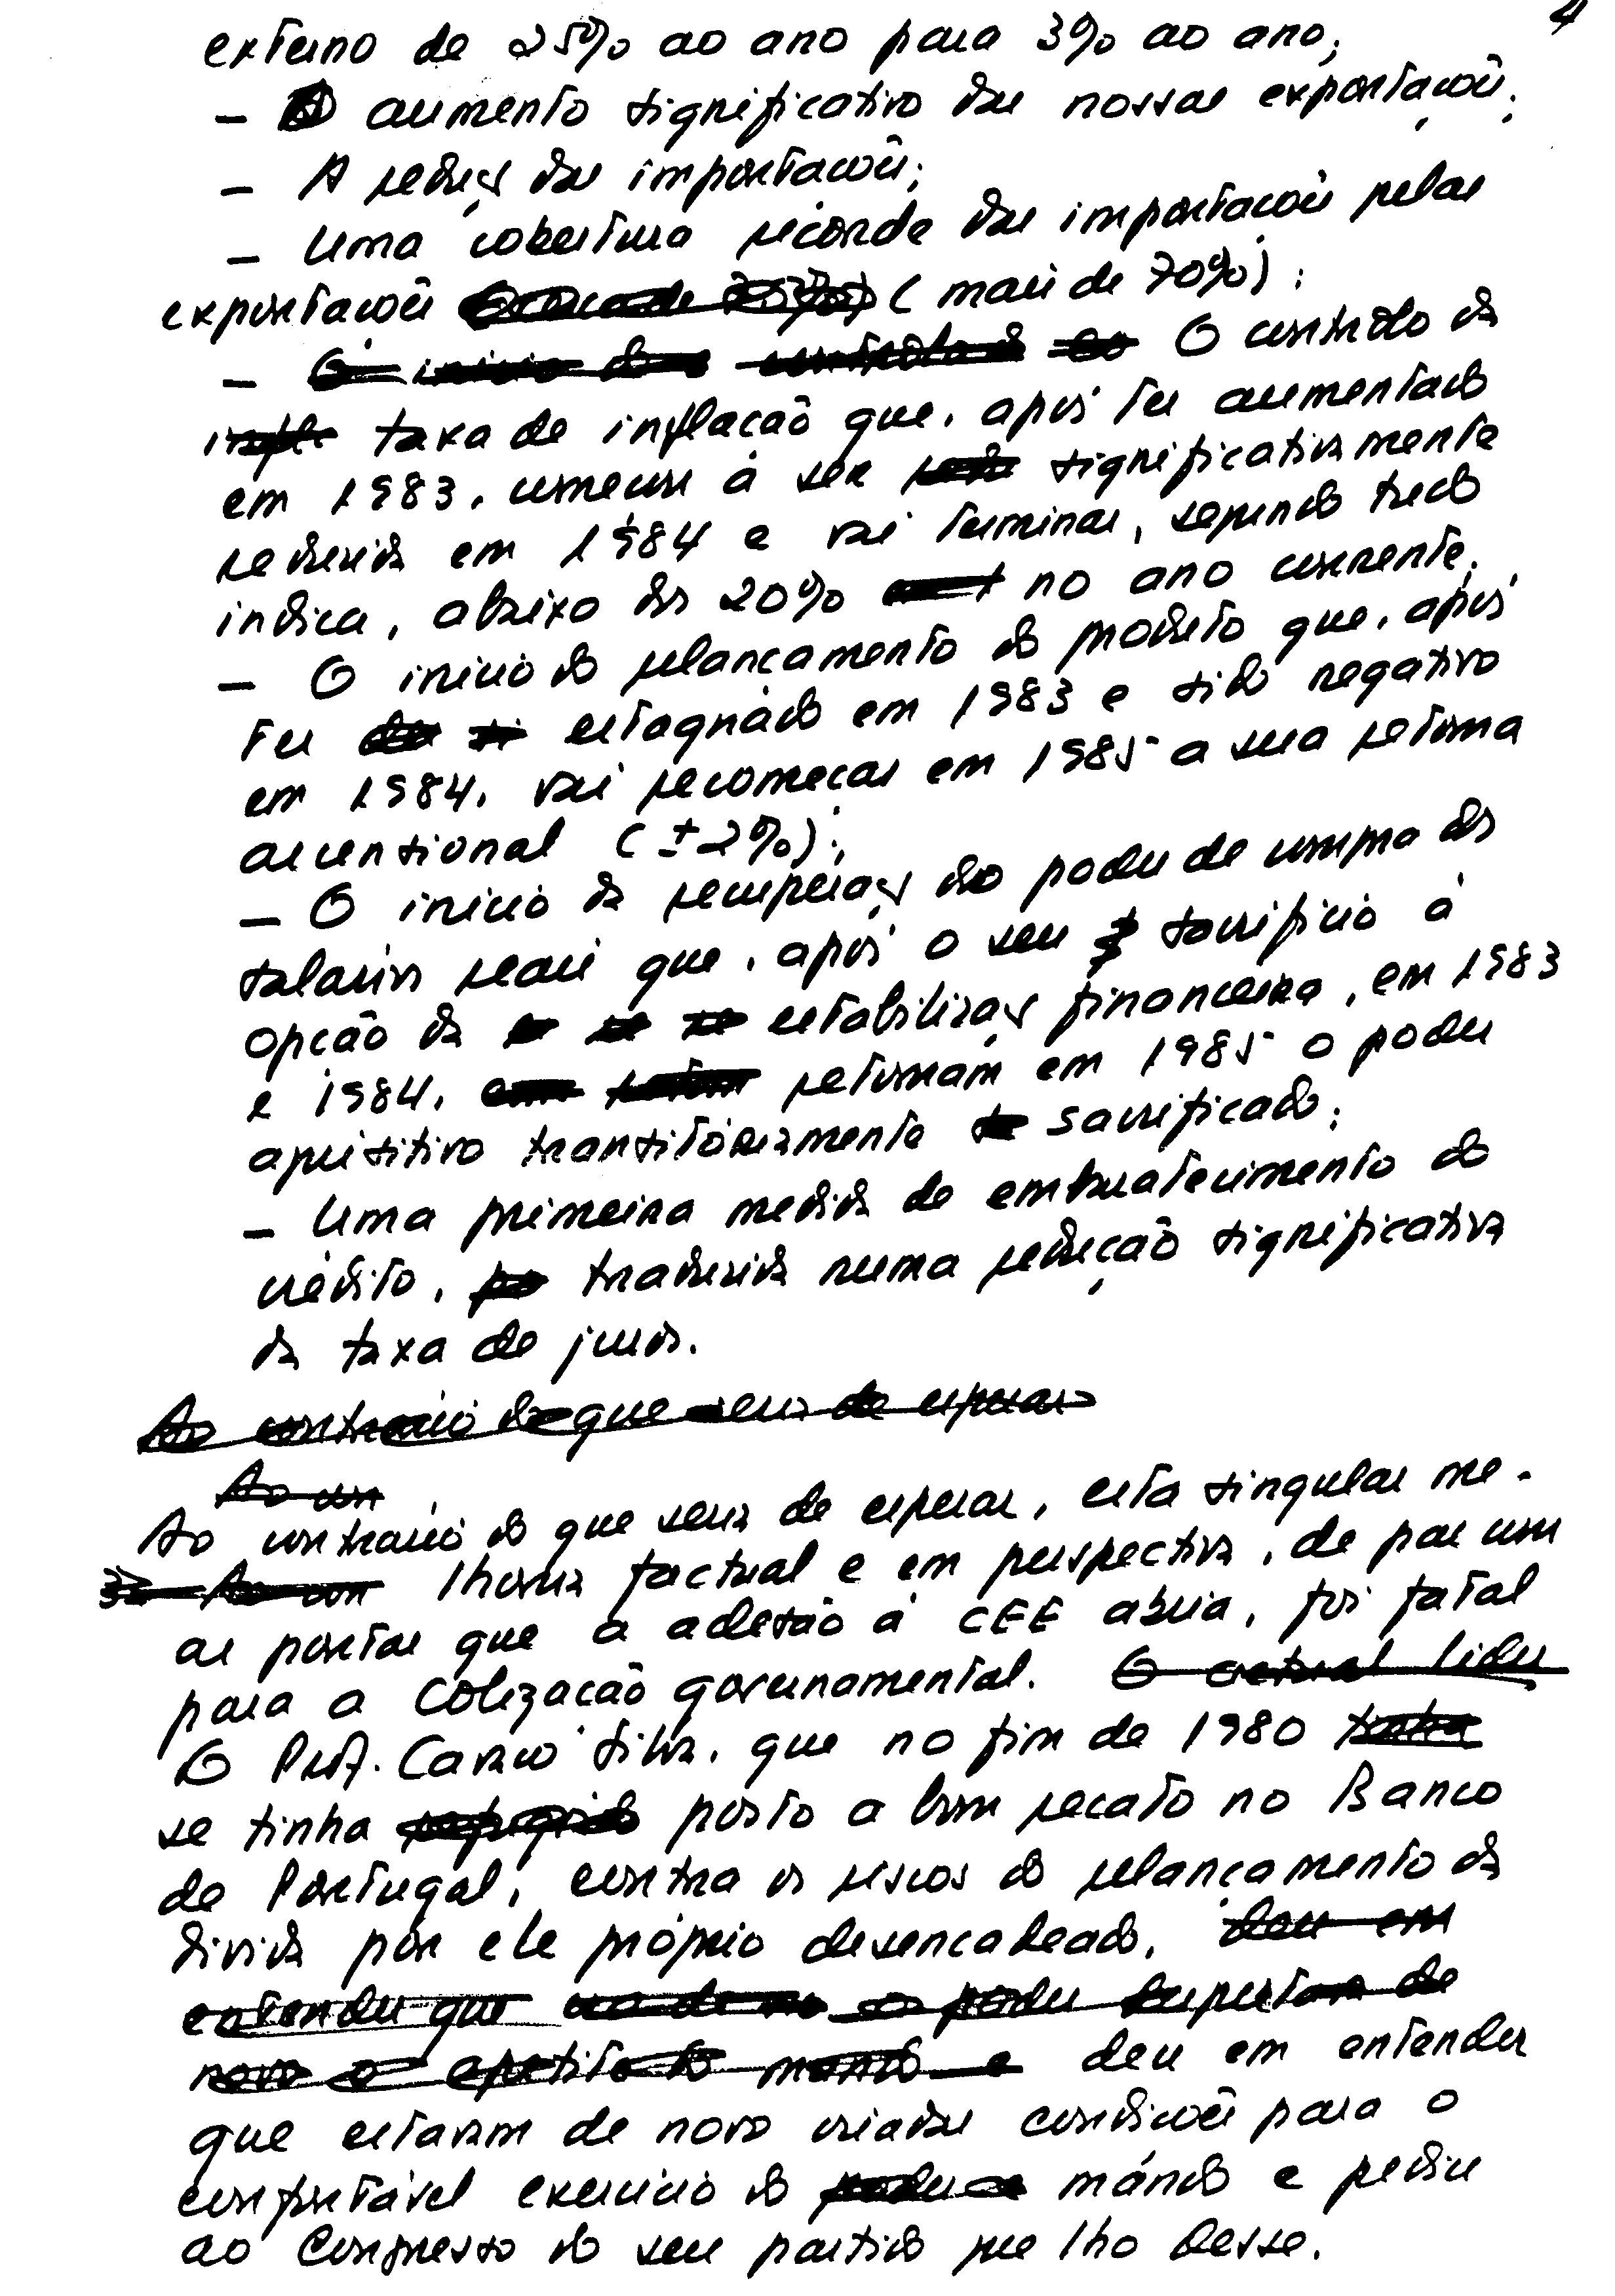 4
externo de 25% ao ano para 3% ao ano;
- O aumento significativo das nossas exportações;
- A redução das importações;
- Uma cobertura recorde das importações pelas
exportações (mais de 70%);
- O controlo da
taxa de inflação que, após ter aumentado
em 1983, começou a ser significativamente
reduzida em 1984 e vai terminar, segundo tudo
indica, abaixo dos 20% no ano corrente;
- O início do relançamento do produto que, após
ter estagnado em 1983 e sido negativo
em 1984, vai recomeçar em 1985 a sua retoma
ascensional (±2%);
- O início da recuperação do poder de compra dos
salários reais que, após o seu sacrifício à
opção da estabilização financeira, em 1983
e 1984, retomam em 1985 o poder
aquisitivo transitòriamente sacrificado;
- Uma primeira medida de embaratecimento do
crédito, traduzida numa redução significativa
da taxa de juros.
Ao contrário do que seria de esperar
Ao con
Ao contrário do que seria de esperar, esta singular me-
lhoria factual e em perspectiva, de par com
as portas que a adesão à CEE abria, foi fatal
para a Coligação governamental. O actual líder
O Prof. Cavaco Silva, que no fim de 1980 tinha
se tinha posto a bom recato no Banco
de Portugal, contra os riscos do relançamento da
dívida por ele próprio desencadeado, deu em
entender que o poder suportar de
novo o apetite do mando e deu em entender
que estavam de novo criadas condições para o
confortável exercício do mando e pediu
ao Congresso do seu partido que lho desse.